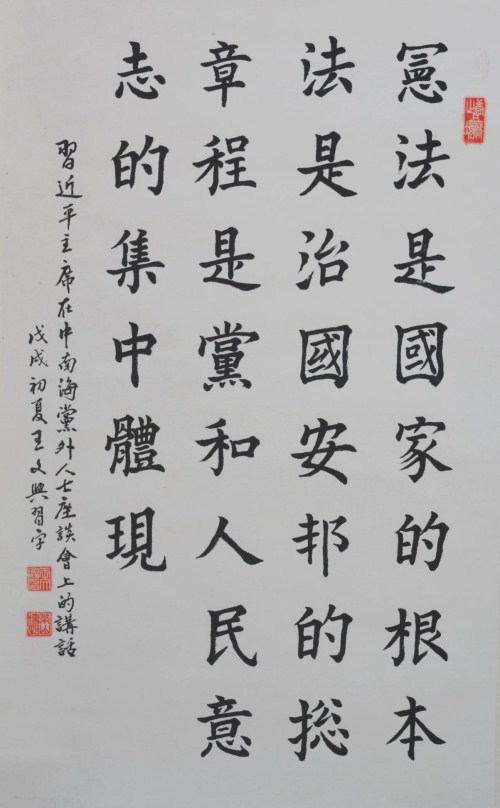 憲法是國家的根本
法是治國安邦的捴
章程是黨和人民意
志的集中體現
習近平主席在中南海黨外人士座談會上的講話
戊戌初夏王文興習字